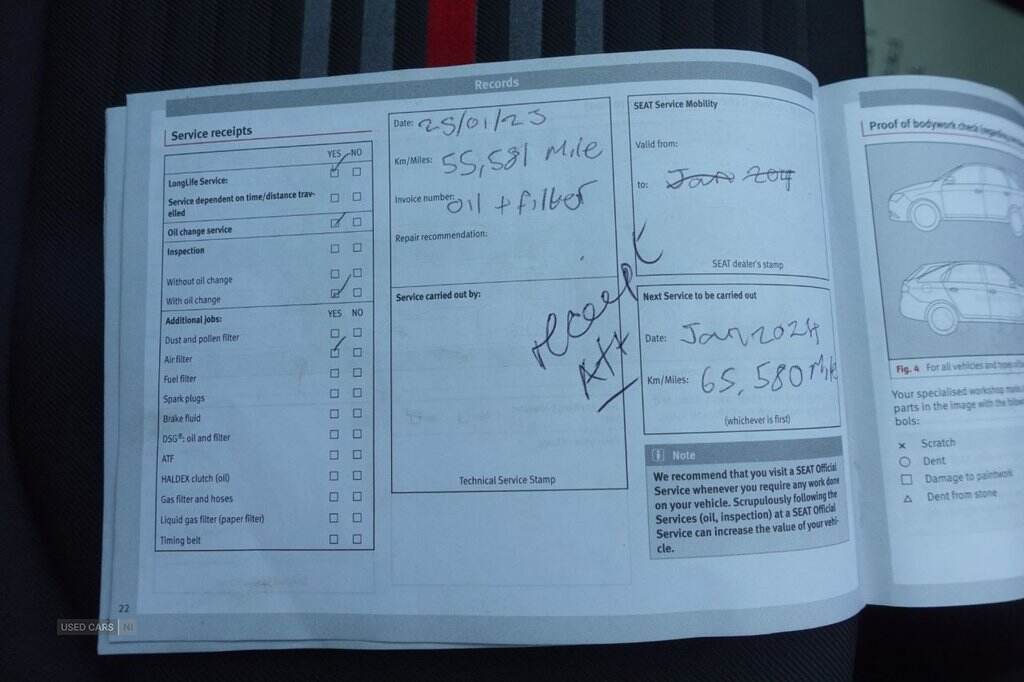 Records
Service receipts
YES NO
LongLife Service:
Service dependent on time/distance trav-
elled
Oil change service
Inspection
Without oil change
With oil change
Additional jobs: YES NO
Dust and pollen filter
Air filter
Fuel filter
Spark plugs
Brake fluid
DSG®: oil and filter
ATF
HALDEX clutch (oil)
Gas filter and hoses
Liquid gas filter (paper filter)
Timing belt
22
Date: 25/01/23
Km/Miles: 55,581 Mile
Invoice number: oil + filter
Repair recommendation:
Service carried out by:
Technical Service Stamp
SEAT Service Mobility
Valid from:
to: Jan
SEAT dealer's stamp
Next Service to be carried out
Date: Jan 2024
Km/Miles: 65,580 Mile
(whichever is first)
Note
We recommend that you visit a SEAT Official
Service whenever you require any work done
on your vehicle. Scrupulously following the
Services (oil, inspection) at a SEAT Official
Service can increase the value of your vehi-
cle.
Proof of bodywork check
Fig. 4 For all vehicles and
Your specialised workshop
parts in the image with the
bols:
Scratch
Dent
Damage to paintwork
Dent from stone
USED CARS NI